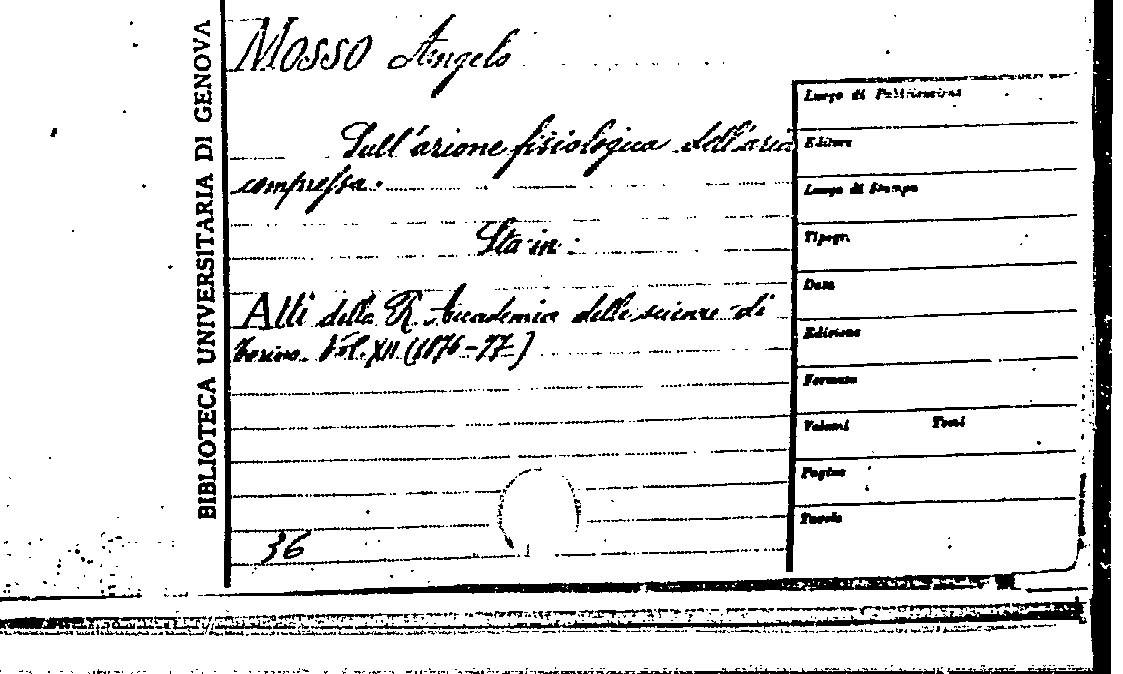 BIBLIOTECA UNIVERSITARIA DI GENOVA
MOSSO Angelo
Sull'azione fisiologica dell'aria
compressa.
Sta in:
Atti della R. Accademia delle scienze di
Torino. Vol. XII (1876-77)
36
Luogo di Pubblicazione
Editore
Luogo di Stampa
Tipogr.
Data
Edizione
Formato
Volumi Tomi
Pagine
Tavole